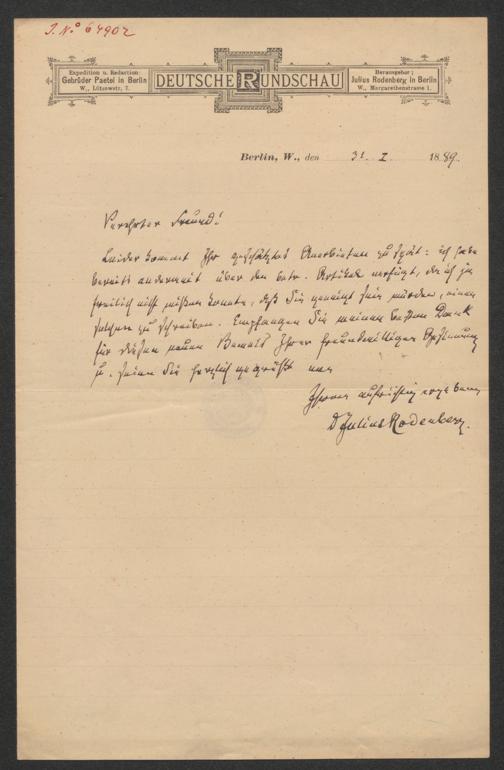 J. No 64902
Expedition u. Redaction
Gebrüder Paetel in Berlin
W., Lützowstr. 7.
DEUTSCHE RUNDSCHAU
Herausgeber:
Julius Rodenberg in Berlin
W., Margarethenstrasse 1.
Berlin, W., den 31. I 1889.
Verehrter Freund!
Leider kommt Ihr geschätztes Anerbieten zu spät: ich habe
bereits anderweit über den betr. Artikel verfügt, da ich ja
freilich nicht wissen konnte, daß Sie geneigt sein würden, einen
solchen zu schreiben. Empfangen Sie meinen besten Dank
für diesen neuen Beweis Ihrer freundwilligen Gesinnung
u. seien Sie herzlich gegrüßt von
Ihrem aufrichtig ergebenen
Dr Julius Rodenberg.